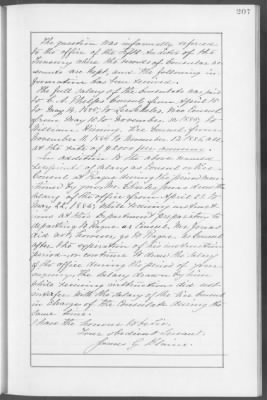 207
The question was informally referred
to the office of the Fifth Auditor of the
Treasury where the records of Consular ac-
counts are kept, and the following in-
formation has been received.
The full salary of the Consulate was paid
to C. A. Phelps Consul, from April 15
to May 14, 1885, to Vice Consul
from May 15 to November 10, 1885, to
William Vice Consul, from
November 11, 1885 to 1885, all
at the rate of $3,000 per annum.
In addition to the above named
payments of salary as Consul or Vice
Consul at Prague during the period men-
tioned by you, Mr. Charles Jonas drew the
salary of the office from April 23 to
May 22, 1885, while receiving instruct-
ions at this Department preparatory to
departing to Prague as Consul. Mr. Jonas
did not, however, go to Prague, he
after the expiration of his instruction
period, or continue to draw the salary
of the office during the period of your
inquiry, the salary drawn by him
while receiving instructions did not
interfere with the salary of the Vice Consul
in charge of the Consulate during the
same time.
I have the honor to be, Sir,
Your obedient servant,
James G. Blaine.